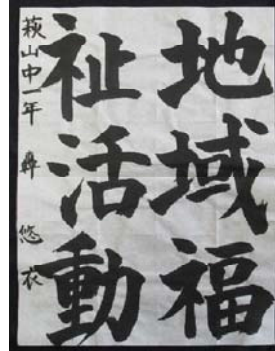 地域福
祉活動
萩山中一年 悠衣